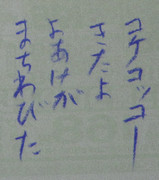 コケコッコー
きたよ
よあけが
まちわびた